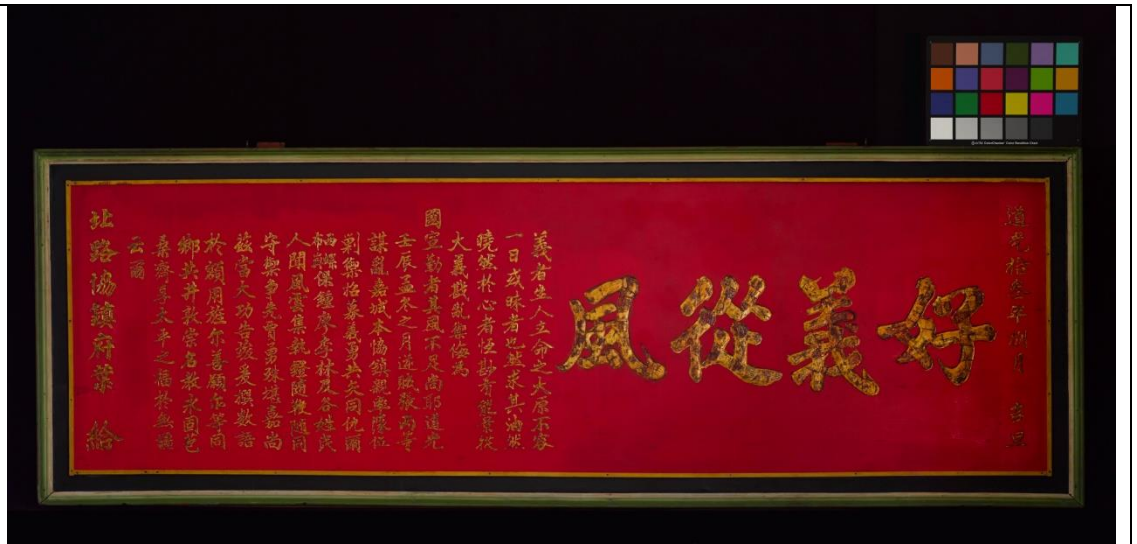 道光拾叁年 月 吉旦
好義從風
義者生人立命之大原不容
一日或昧者也然求其油然
曉然於心者恒尠育能景從
大義戡亂禦侮為
國宣勤者其風不足尚耶道光
壬辰孟冬之月逆賊 兩會
謀亂嘉城本協鎮親率隊伍
剿禦招募義勇共矢同仇爾
保鍾廖李林及各姓民
人聞風雲集執 隨鞭隨同
守禦爭先奮勇殊堪嘉尚
茲當大功告 爰撰數語
於額用旌尔善願尔等同
鄉共井敦崇名教永固苞
桑齊享太平之福於無 
云爾
北路協鎮府葉 給